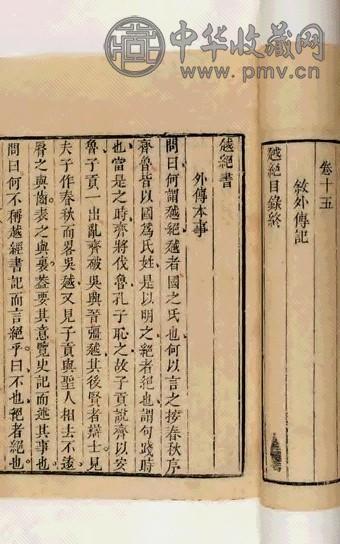 中华收藏网
www.pmv.cn
卷十五
敘外傳記
越絕目錄終
越絕書
外傳本事
問曰何謂越絕越者國之氏也何以言之按春秋序
齊魯皆以國爲氏姓是以明之絕者絕也謂句踐時
也當是之時齊將伐魯孔子恥之故子貢說齊以安
魯子貢一出亂齊破吳興晉彊越其後賢者辯士見
夫子作春秋而畧吳越又見子貢與聖人相去不遠
脣之與齒表之與裏葢要其意覽史記而述其事也
問曰何不稱越經書記而言絕乎曰不也絕者絕也